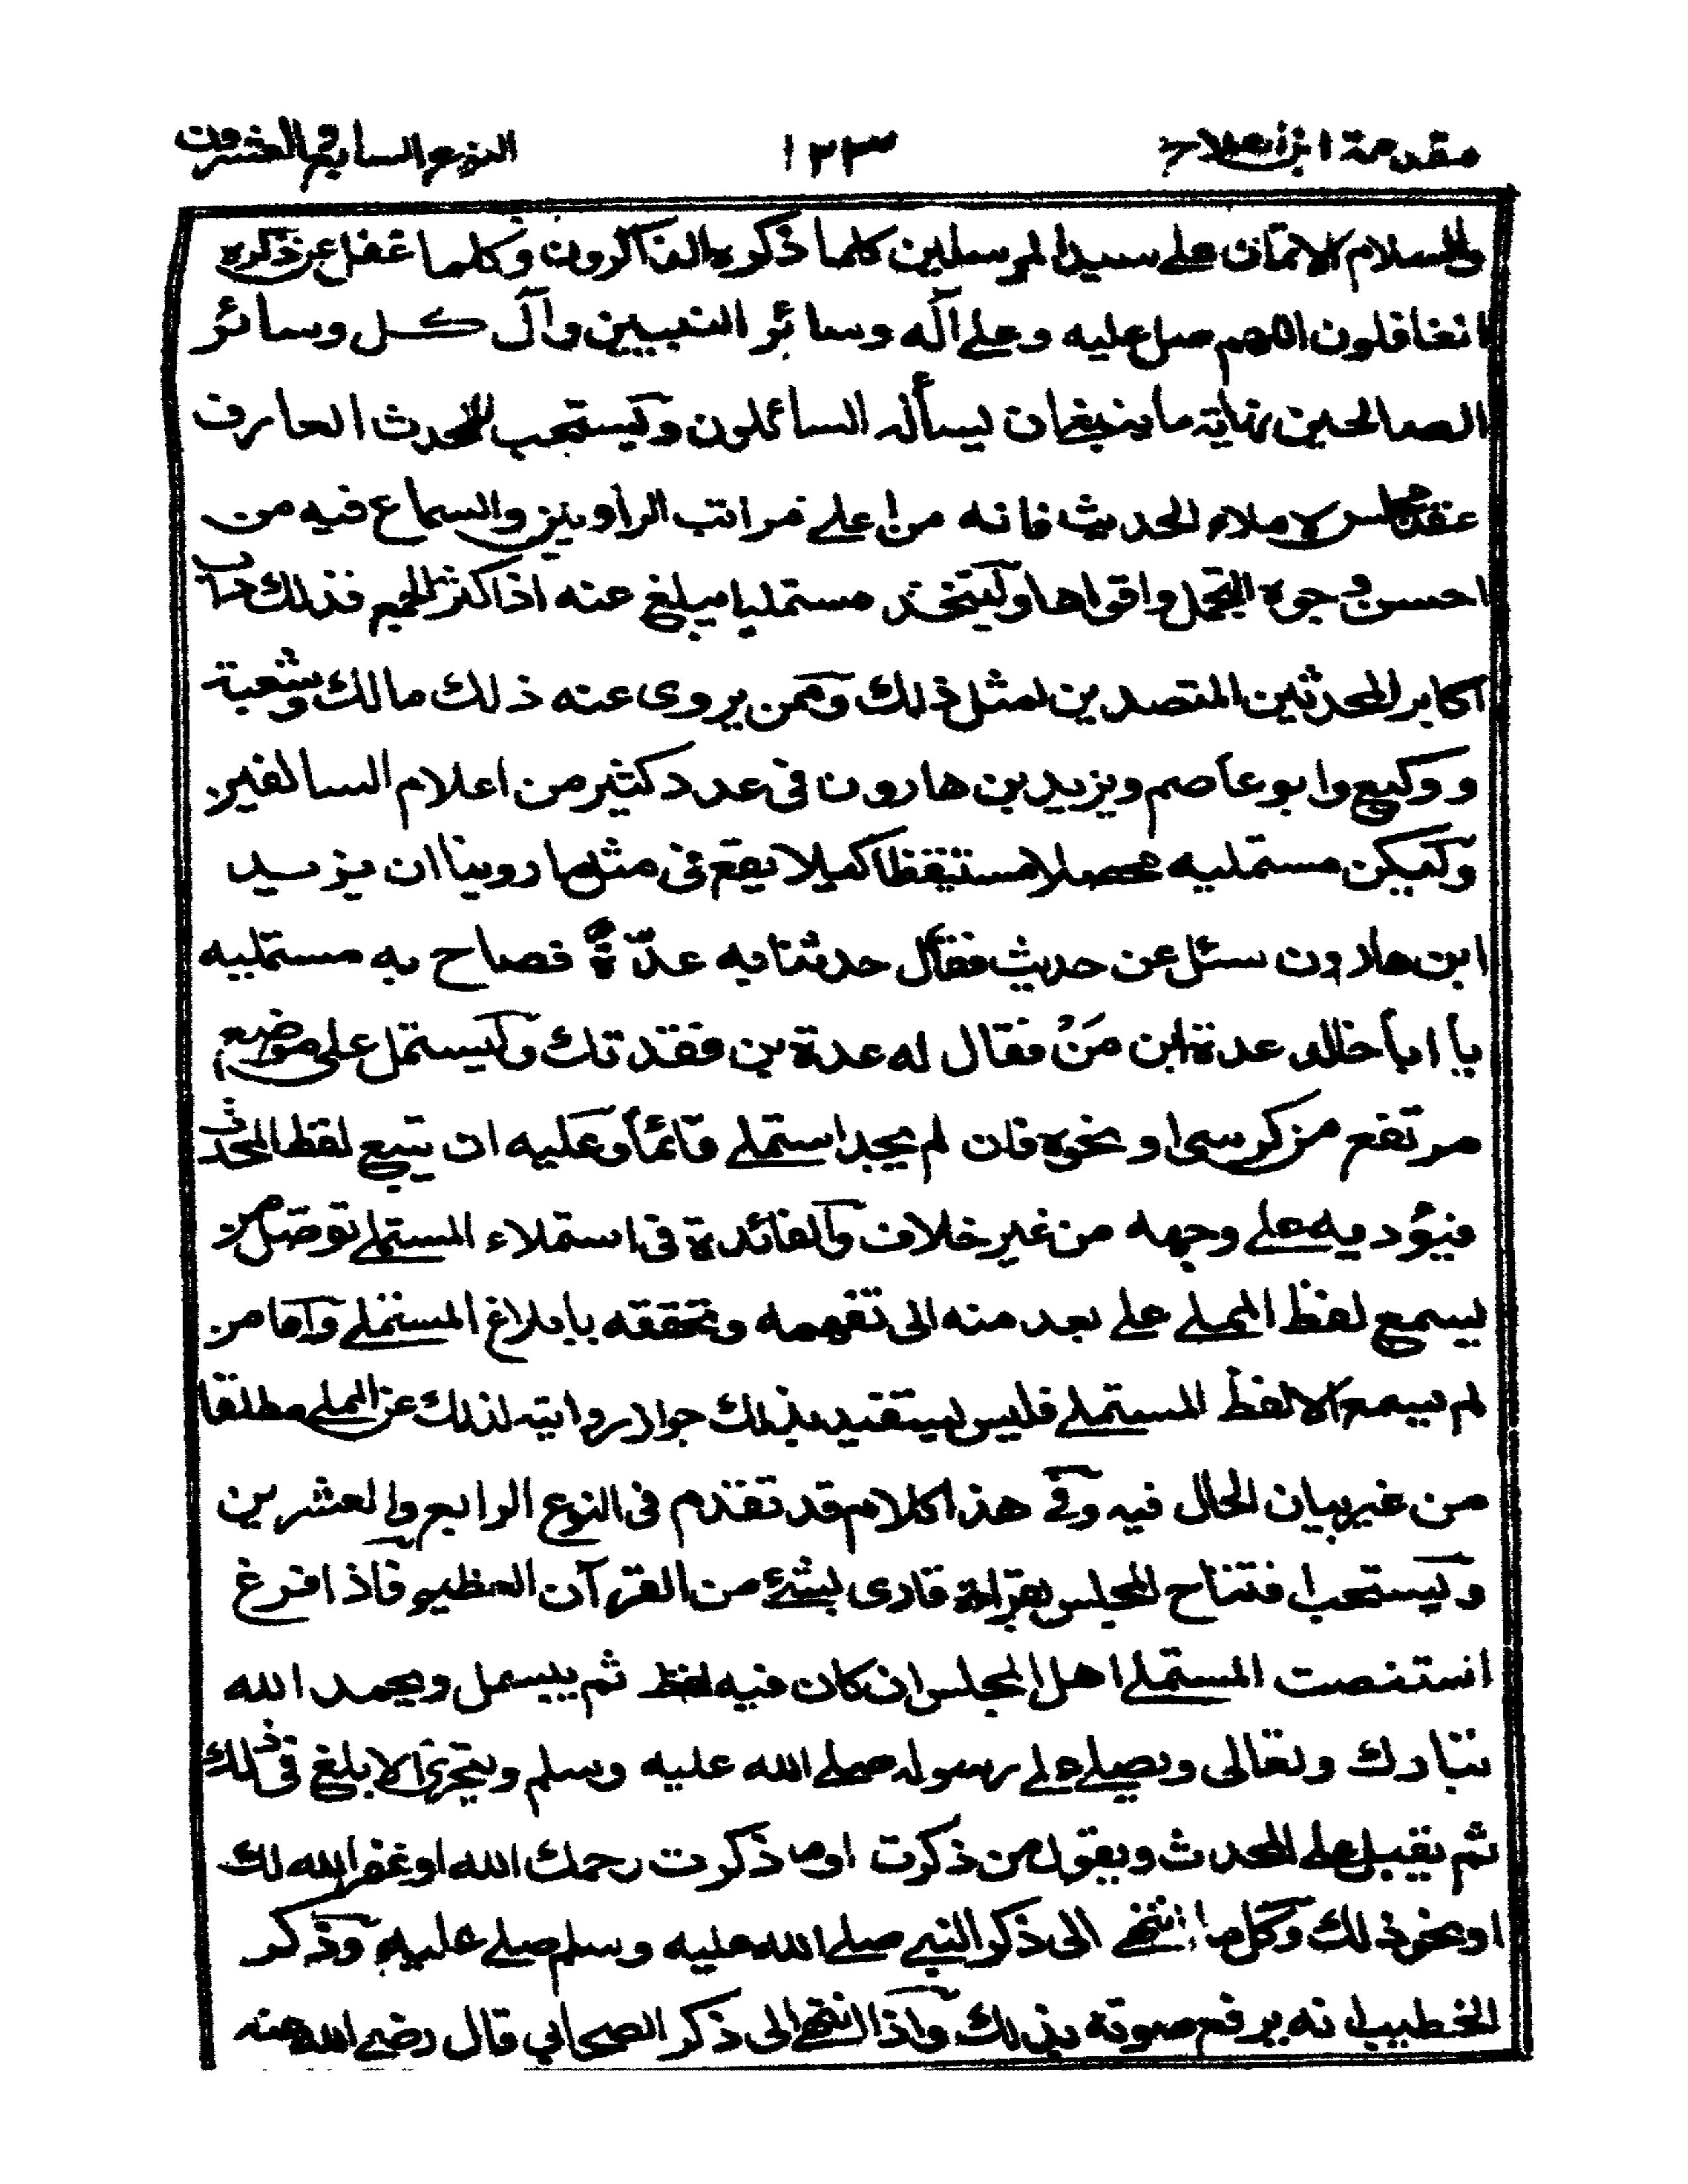 مقدمة ابن صلاح ١٢٣ النوع السابع والعشرون
والسلام الاتمان على سيد المرسلين كلما ذكره الذاكرون وكلما غفل عن ذكره
الغافلون اللهم صل عليه وعلى آله وسائر النبيين وآل كل وسائر
الصالحين نهاية ما ينبغى ان يسأله السائلون ويستحب للمحدث العارف
عقد مجلس لاملاء الحديث فانه من اعلى مراتب الراوين والسماع فيه من
احسن وجوه التحمل واقواها وليتخذ مستمليا يبلغ عنه اذا كثر الجمع فذلك داب
اكابر المحدثين المتصدين لمثل ذلك وممن يروى عنه ذلك مالك وشعبة
ووكيع وابو عاصم ويزيد بن هارون فى عدد كثير من اعلام السالفين
وليكن مستمليه محصلا مستيقظا كميلا يقع فى مثل ما روينا ان يزيد
ابن هارون سئل عن حديث فقال حدثنا به عدّة فصاح به مستمليه
يا ابا خالد عدة ابن مَنْ فقال له عدة بن فقدتك وليستمل على موضع
مرتفع من كرسى او نحوه فان لم يجد استملى قائما وعليه ان يتبع لفظ المحدث
فيؤديه على وجهه من غير خلاف والفائدة فى استملاء المستملى توصل من
يسمع لفظ المملى على بعد منه الى تفهمه وتحققه بابلاغ المستملى واما من
لم يسمع الا لفظ المستملى فليس يستفيد بذلك جواز روايته لذلك عن المملى مطلقا
من غير بيان الحال فيه وفى هذا كلام قد تقدم فى النوع الرابع والعشرين
ويستحب افتتاح المجلس بقراءة قارى لشئ من القرآن العظيم فاذا فرغ
استنصت المستملى اهل المجلس ان كان فيه لغط ثم يبسمل ويحمد الله
تبارك وتعالى ويصلى على رسوله صلى الله عليه وسلم ويتحرى الابلغ فى ذلك
ثم يقبل على المحدث ويقول من ذكرت او ما ذكرت رحمك الله او غفر الله لك
او نحو ذلك وكل ما انتهى الى ذكر النبى صلى الله عليه وسلم صلى عليه وذكر
الخطيب انه يرفع صوته بذلك واذا انتهى الى ذكر الصحابى قال رضى الله عنه